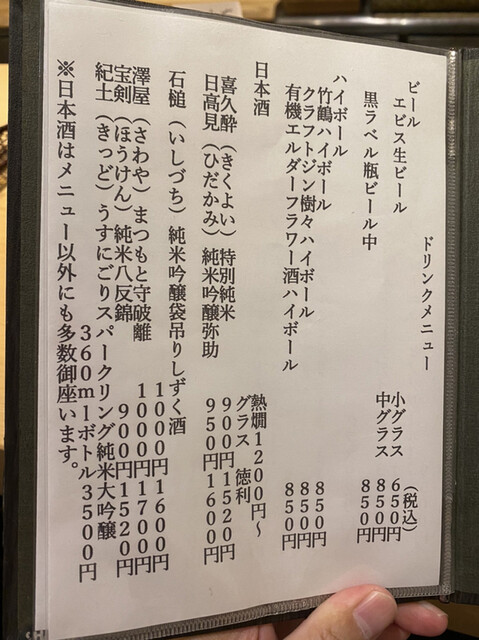 ドリンクメニュー
(税込)
ビール
エビス生ビール 小グラス 650円
中グラス 850円
黒ラベル瓶ビール中 850円
ハイボール
竹鶴ハイボール 850円
クラフトジン樹々ハイボール 850円
有機エルダーフラワー酒ハイボール 850円
日本酒 熱燗1200円~
グラス 徳利
喜久酔(きくよい)特別純米 900円 1520円
日高見(ひだかみ)純米吟醸弥助 950円 1600円
石槌(いしづち)純米吟醸袋吊りしずく酒 1000円 1600円
澤屋(さわや)まつもと守破離 1000円 1700円
宝剣(ほうけん)純米八反錦 900円 1520円
紀土(きっど)うすにごりスパークリング純米大吟醸
360mlボトル3500円
※日本酒はメニュー以外にも多数御座います。